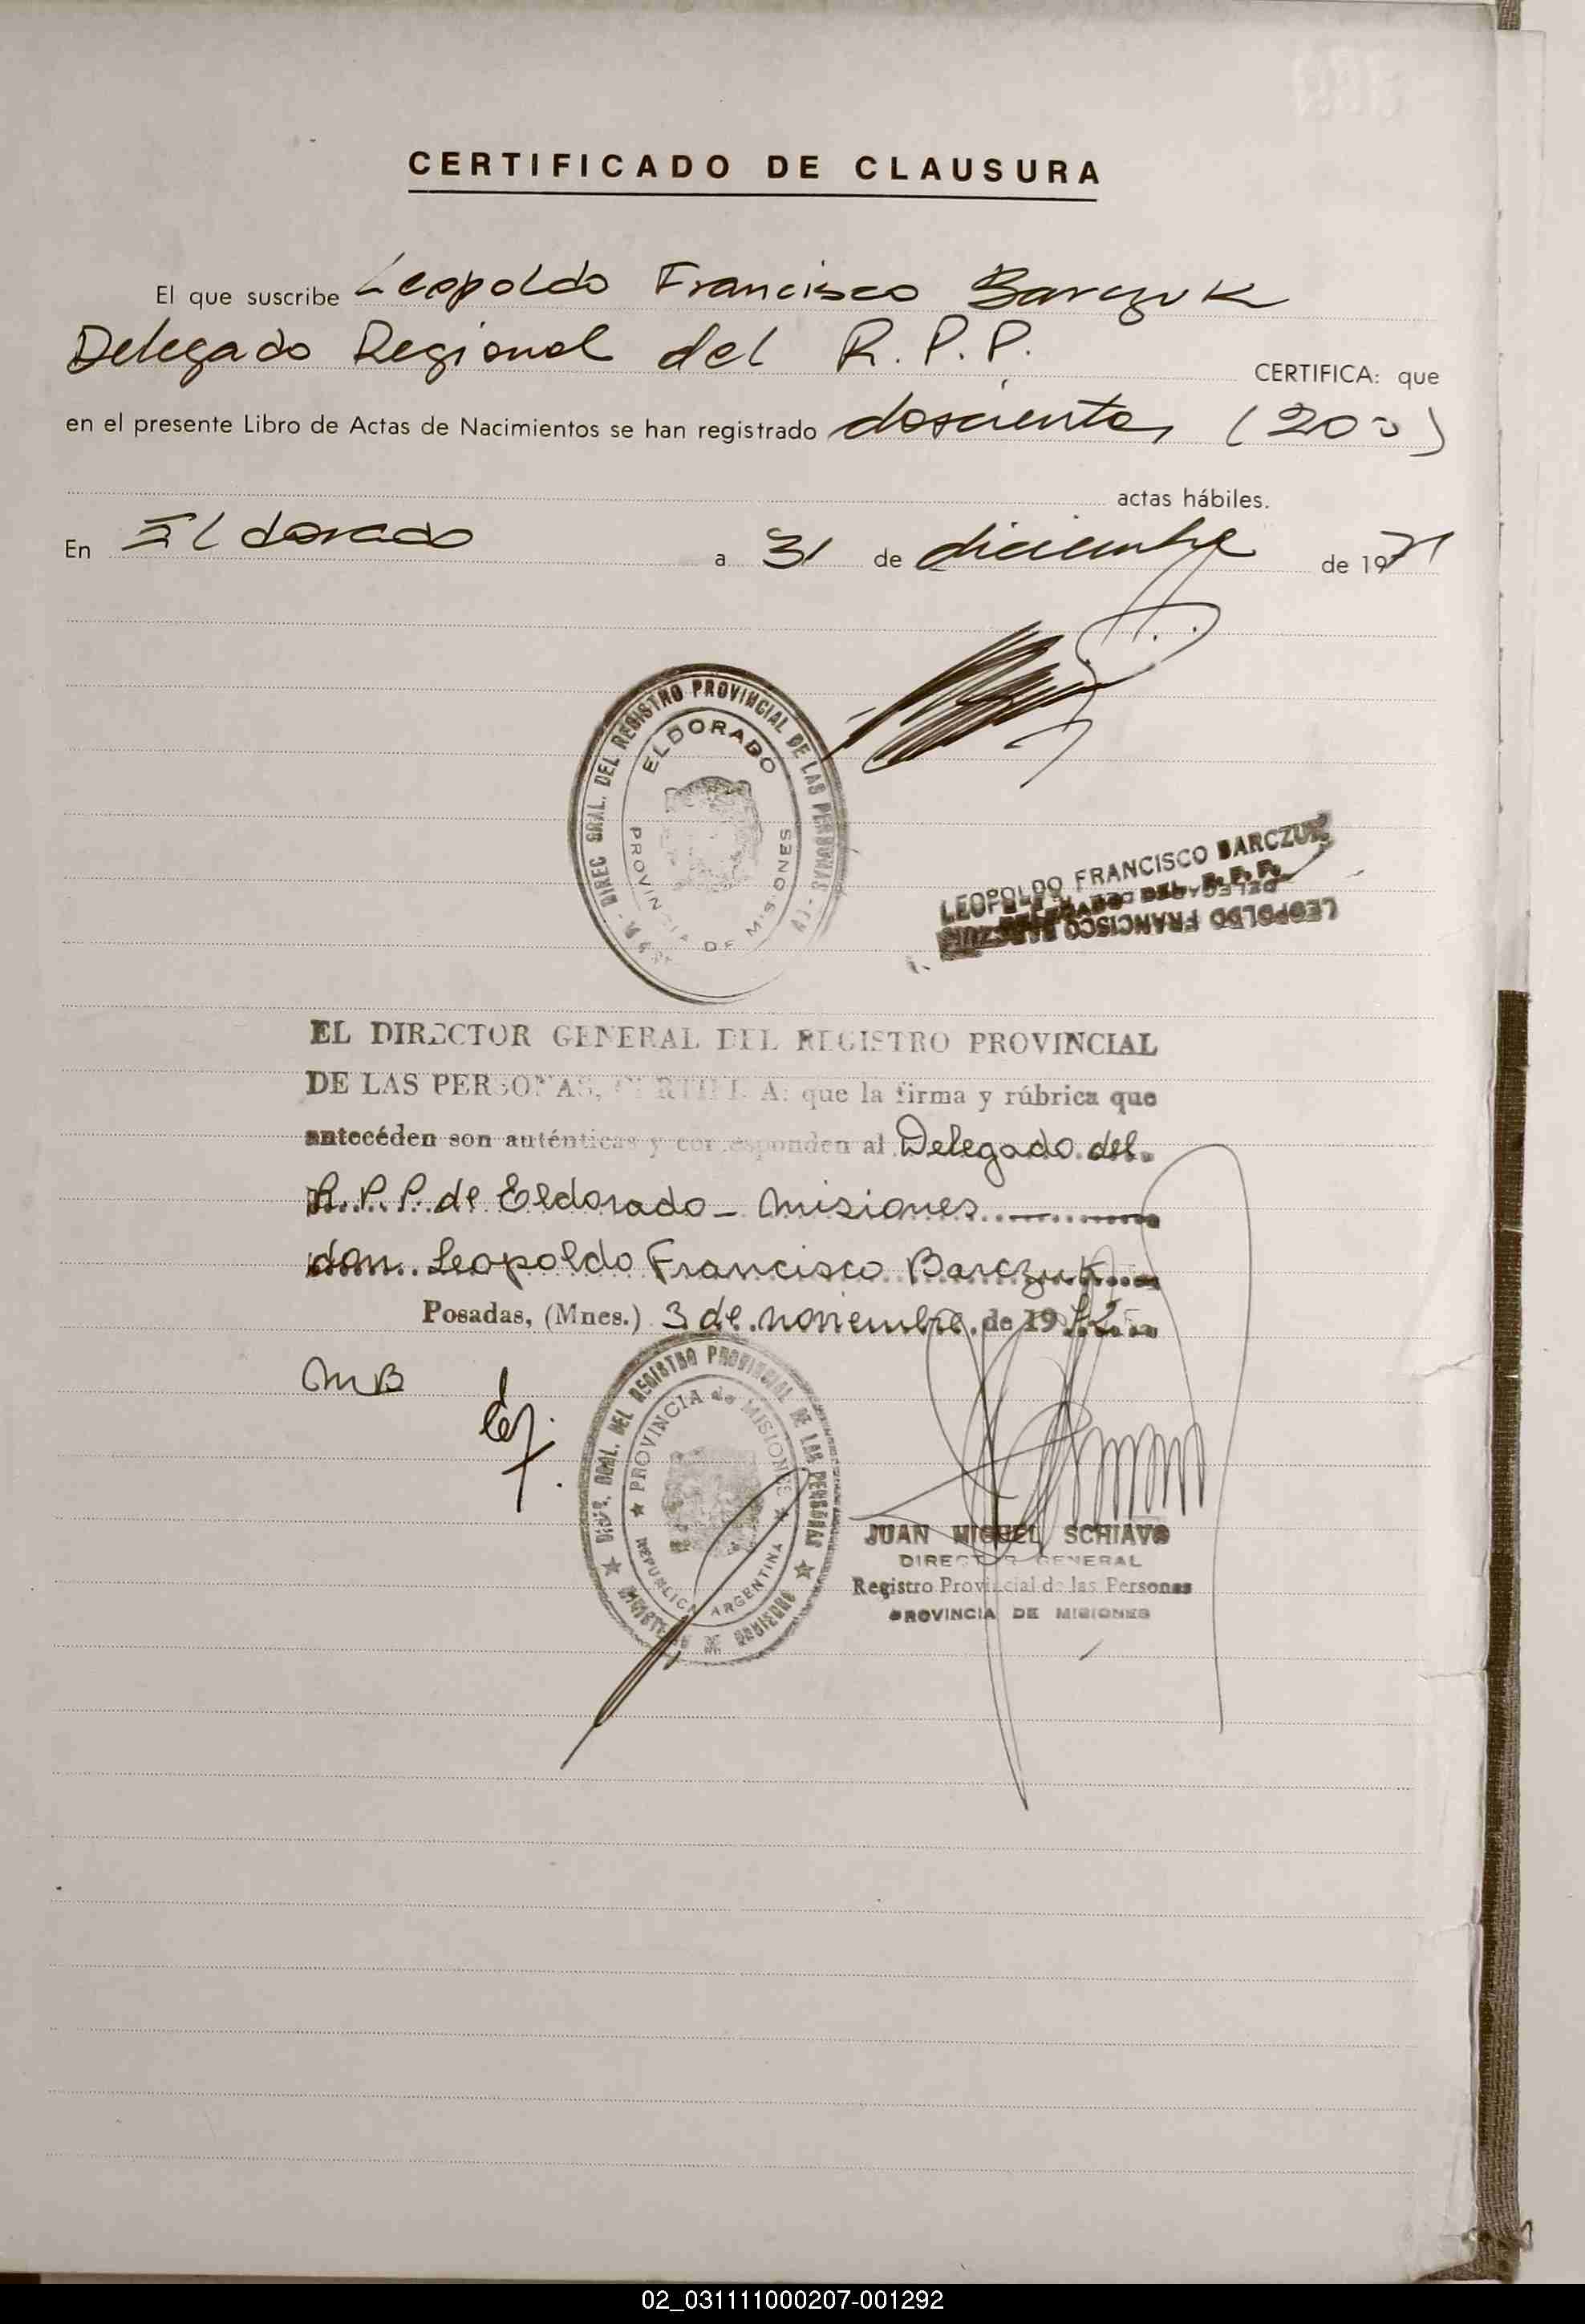 CERTIFICADO DE CLAUSURA
El que suscribe Leopoldo Francisco Barczuk
Delegado Regional del R.P.P. CERTIFICA: que
en el presente Libro de Actas de Nacimientos se han registrado doscientas (200)
actas hábiles.
En Eldorado a 31 de diciembre de 1971
DIREC GRAL. DEL REGISTRO PROVINCIAL DE LAS PERSONAS
ELDORADO
PROVINCIA DE MISIONES
LEOPOLDO FRANCISCO BARCZUK
DELEGADO DEL R.P.P.
LEOPOLDO FRANCISCO BARCZUK
EL DIRECTOR GENERAL DEL REGISTRO PROVINCIAL
DE LAS PERSONAS, CERTIFICA: que la firma y rúbrica que
antecéden son auténticas y corresponden al Delegado del
R.P.P. de Eldorado - Misiones
don Leopoldo Francisco Barczuk
Posadas, (Mnes.) 3 de noviembre de 1972
MB
DIREC. GRAL. DEL REGISTRO PROVINCIAL DE LAS PERSONAS
PROVINCIA de MISIONES
REPUBLICA ARGENTINA
MINISTERIO DE GOBIERNO
JUAN MIGUEL SCHIAVO
DIRECTOR GENERAL
Registro Provincial de las Personas
PROVINCIA DE MISIONES
02_031111000207-001292